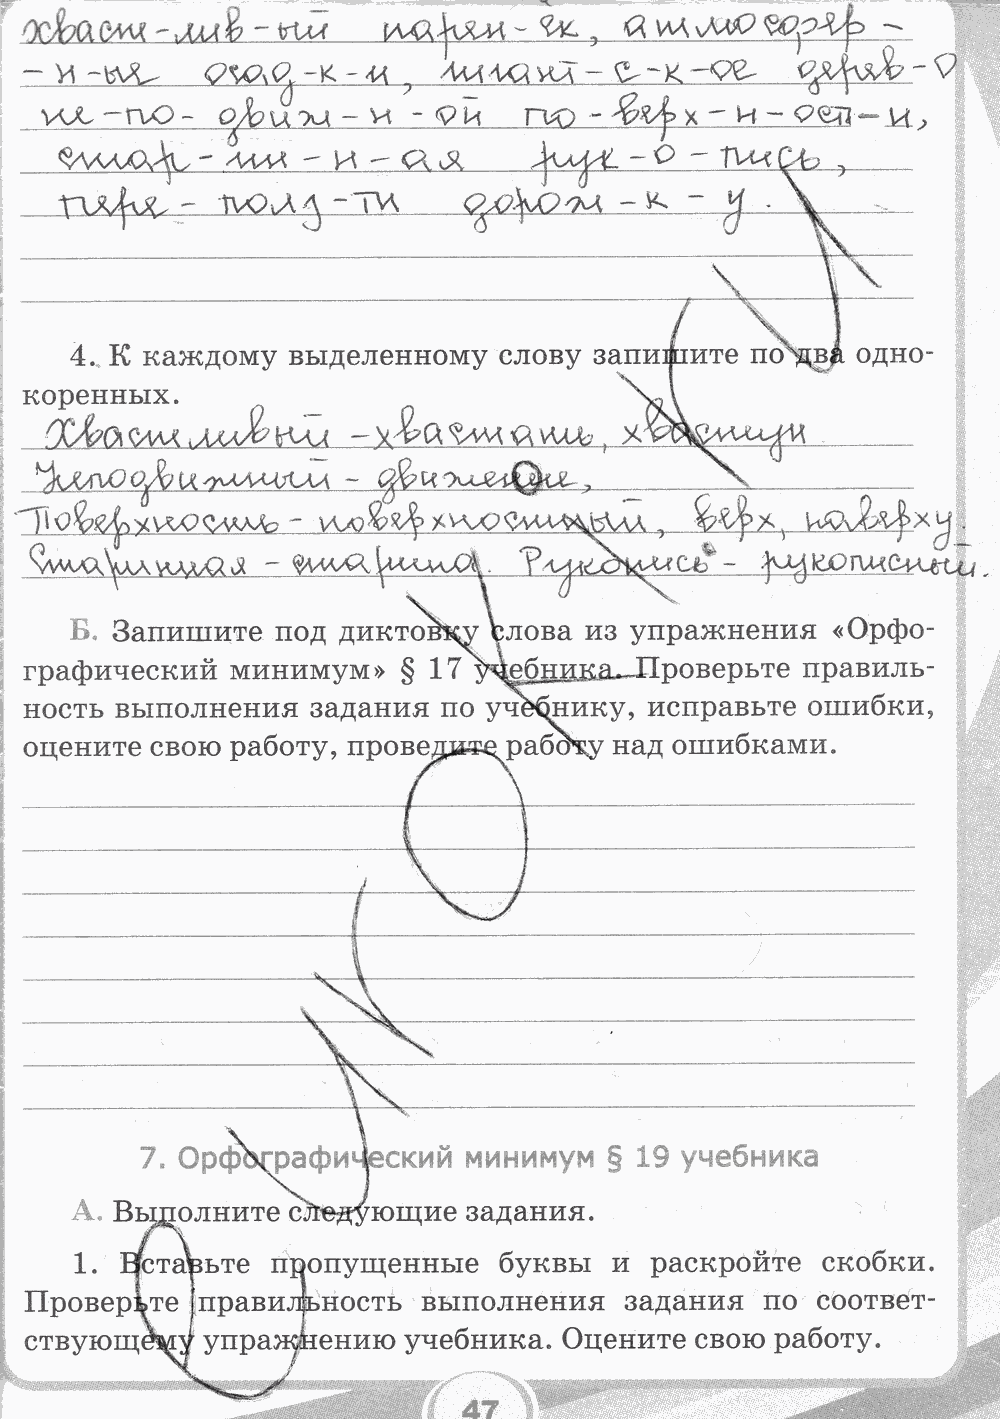 хваст-лив-ый парен-ёк, атмосфер-
-н-ые осад-к-и, гигант-с-к-ое дерев-о
не-по-движ-н-ой по-верх-н-ост-и,
стар-ин-н-ая рук-о-пись,
пере-полз-ти дорож-к-у.
4. К каждому выделенному слову запишите по два одно-
коренных.
Хвастливый - хвастать, хвастун
Неподвижный - движение,
Поверхность - поверхностный, верх, наверху.
Старинная - старина. Рукопись - рукописный.
Б. Запишите под диктовку слова из упражнения «Орфо-
графический минимум» § 17 учебника. Проверьте правиль-
ность выполнения задания по учебнику, исправьте ошибки,
оцените свою работу, проведите работу над ошибками.
7. Орфографический минимум § 19 учебника
А. Выполните следующие задания.
1. Вставьте пропущенные буквы и раскройте скобки.
Проверьте правильность выполнения задания по соответ-
ствующему упражнению учебника. Оцените свою работу.
47